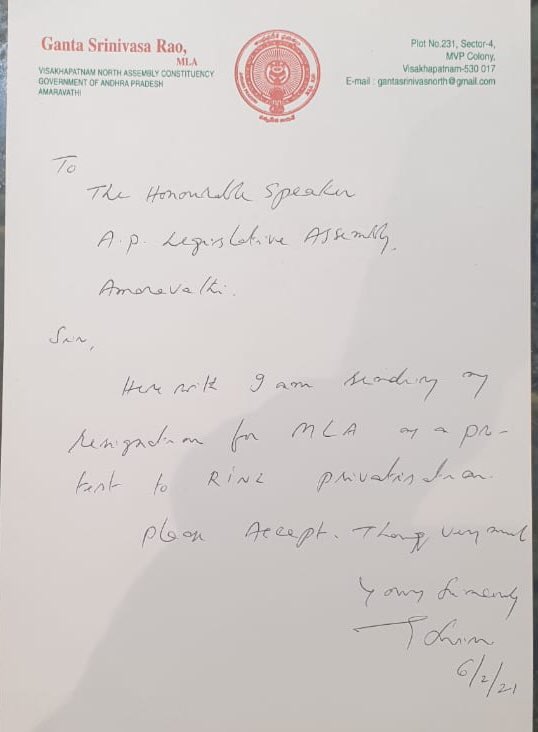 Ganta Srinivasa Rao,
MLA
VISAKHAPATNAM NORTH ASSEMBLY CONSTITUENCY
GOVERNMENT OF ANDHRA PRADESH
AMARAVATHI
Plot No.231, Sector-4,
MVP Colony,
Visakhapatnam-530 017
E-mail : gantasrinivasnorth@gmail.com
To
The Honourable Speaker
A.P. Legislative Assembly,
Amaravathi.
Sir,
Here with I am sending my
resignation for MLA as a pro-
test to RINL privatisation.
please Accept. Thank very much
Yours Sincerely
6/2/21